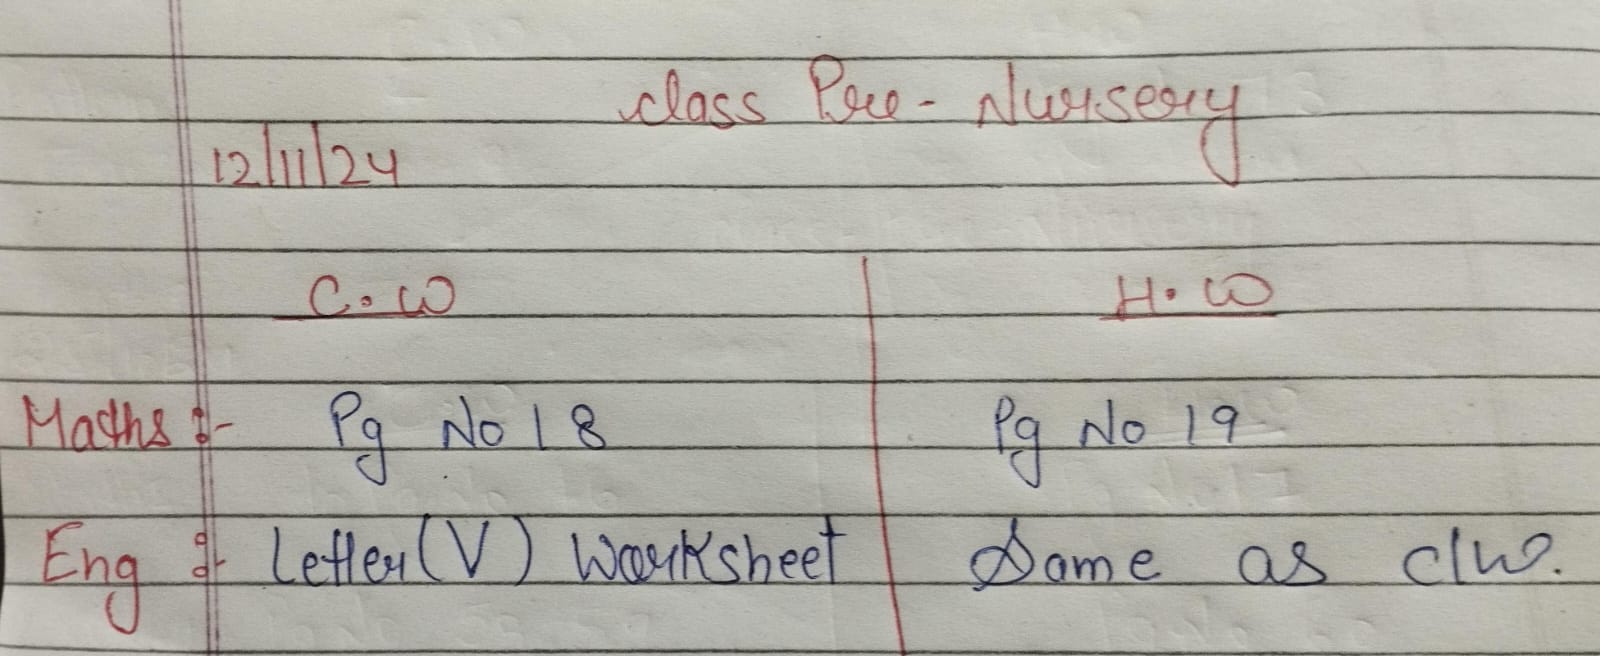 Class Pre-Nursery
12/11/24
C.W H.W
Maths :- Pg No 18 Pg No 19
Eng :- Letter (V) Worksheet Same as c/w.